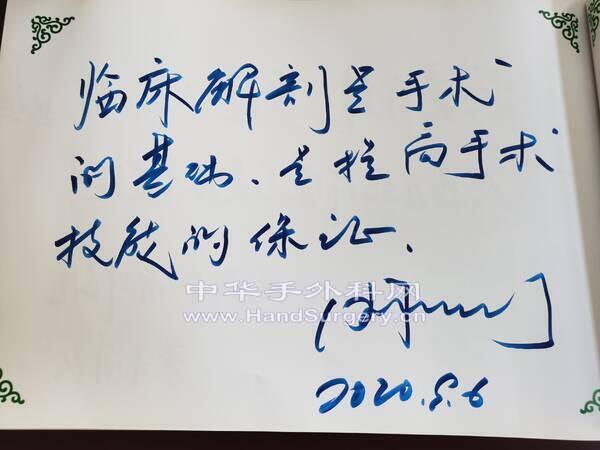 临床解剖是手术
的基础、是提高手术
技能的保证、
中华手外科网
www.HandSurgery.cn
2020.5.6